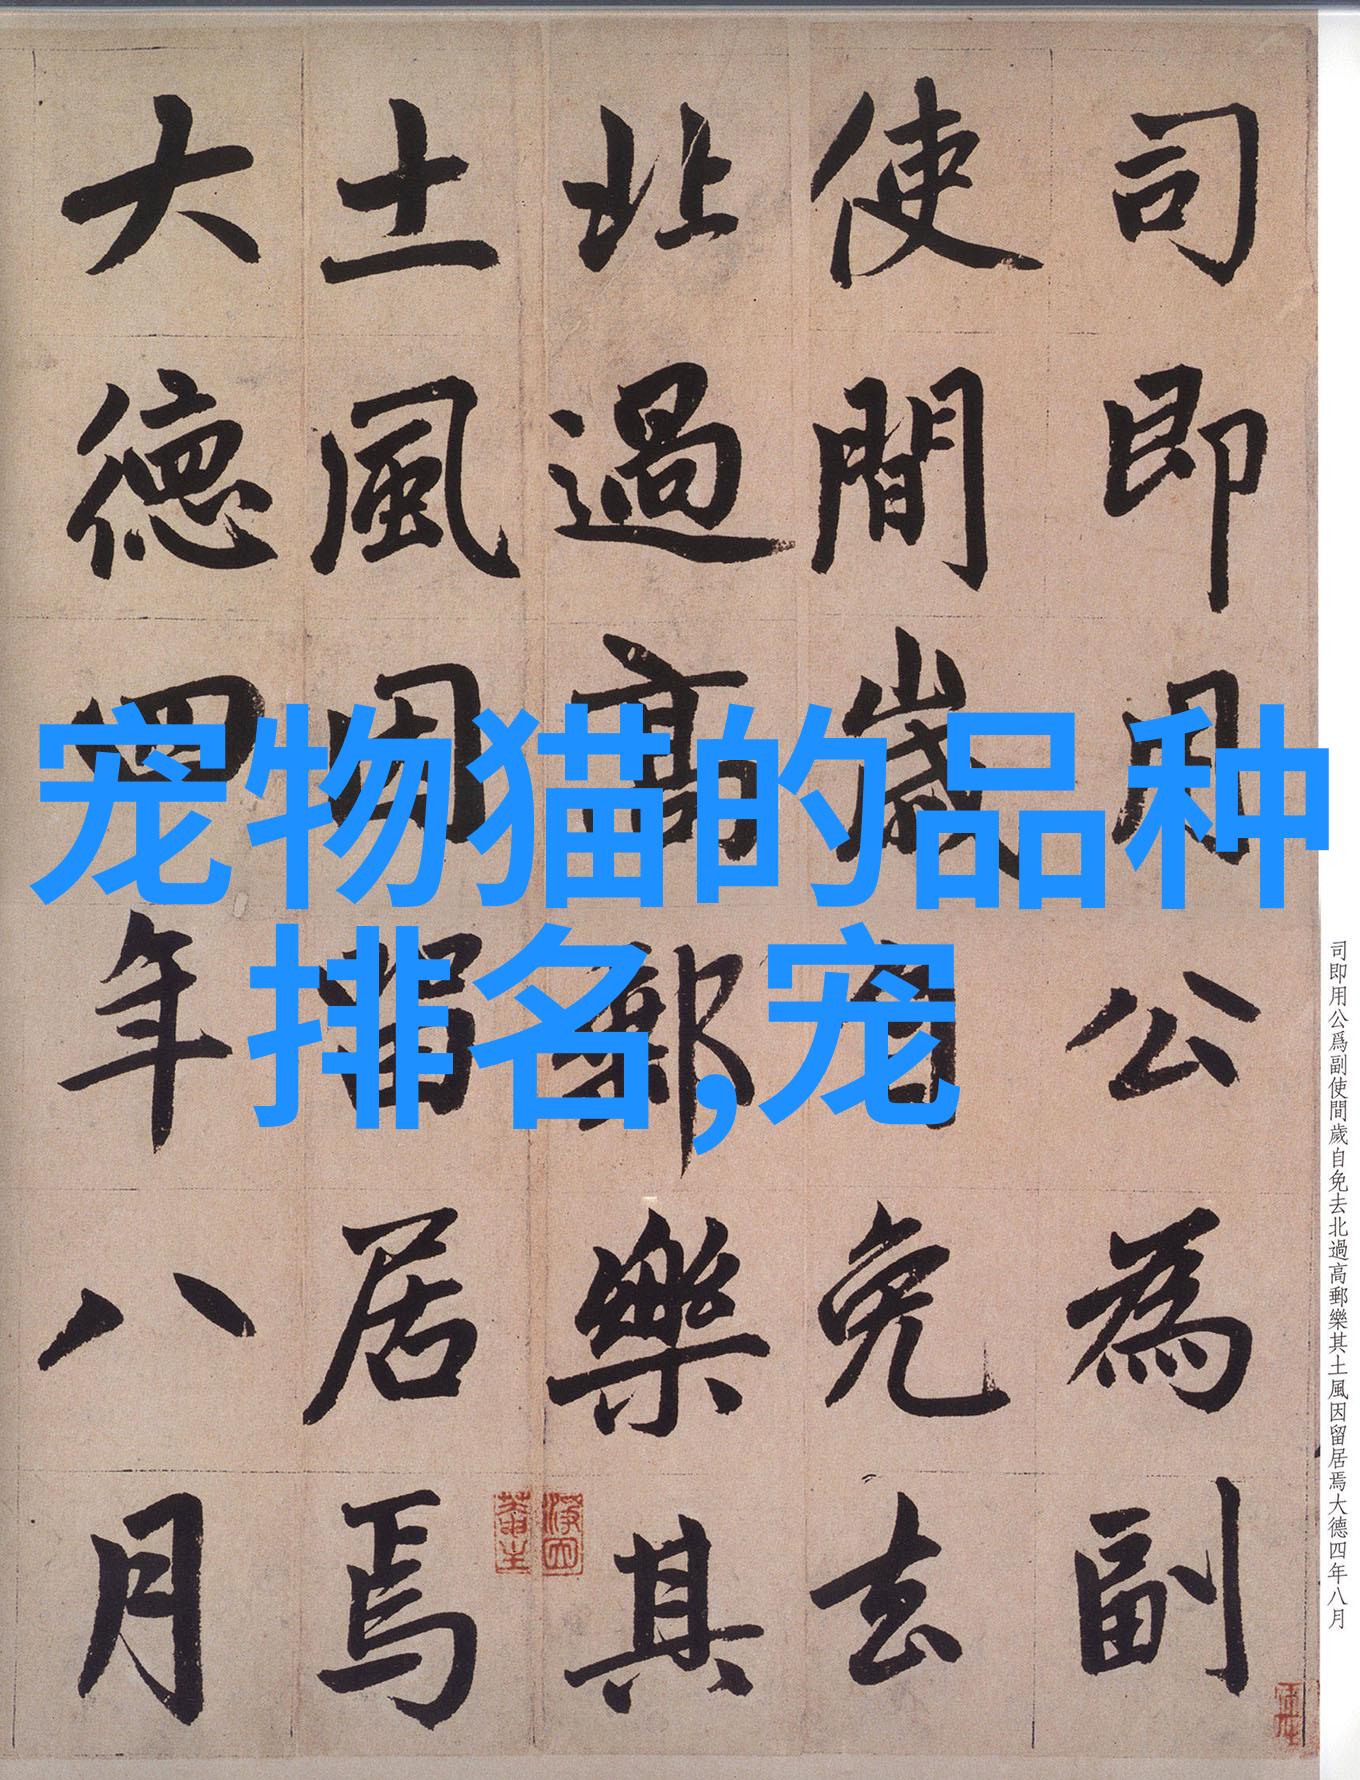 宠物猫的品种
排名,宠
司即用公為副
使間歲自免去
北過高郵樂其
土風因留居焉
大德四年八月
司即用公爲副使間歲自免去北過高郵樂其土風因留居焉大德四年八月